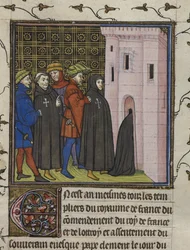 En cest an mesmes tous les tem
pliers du royaume de france du
commendement du roy de france
et de lottroy et assentement du
souverain evesque pape clement le iour du